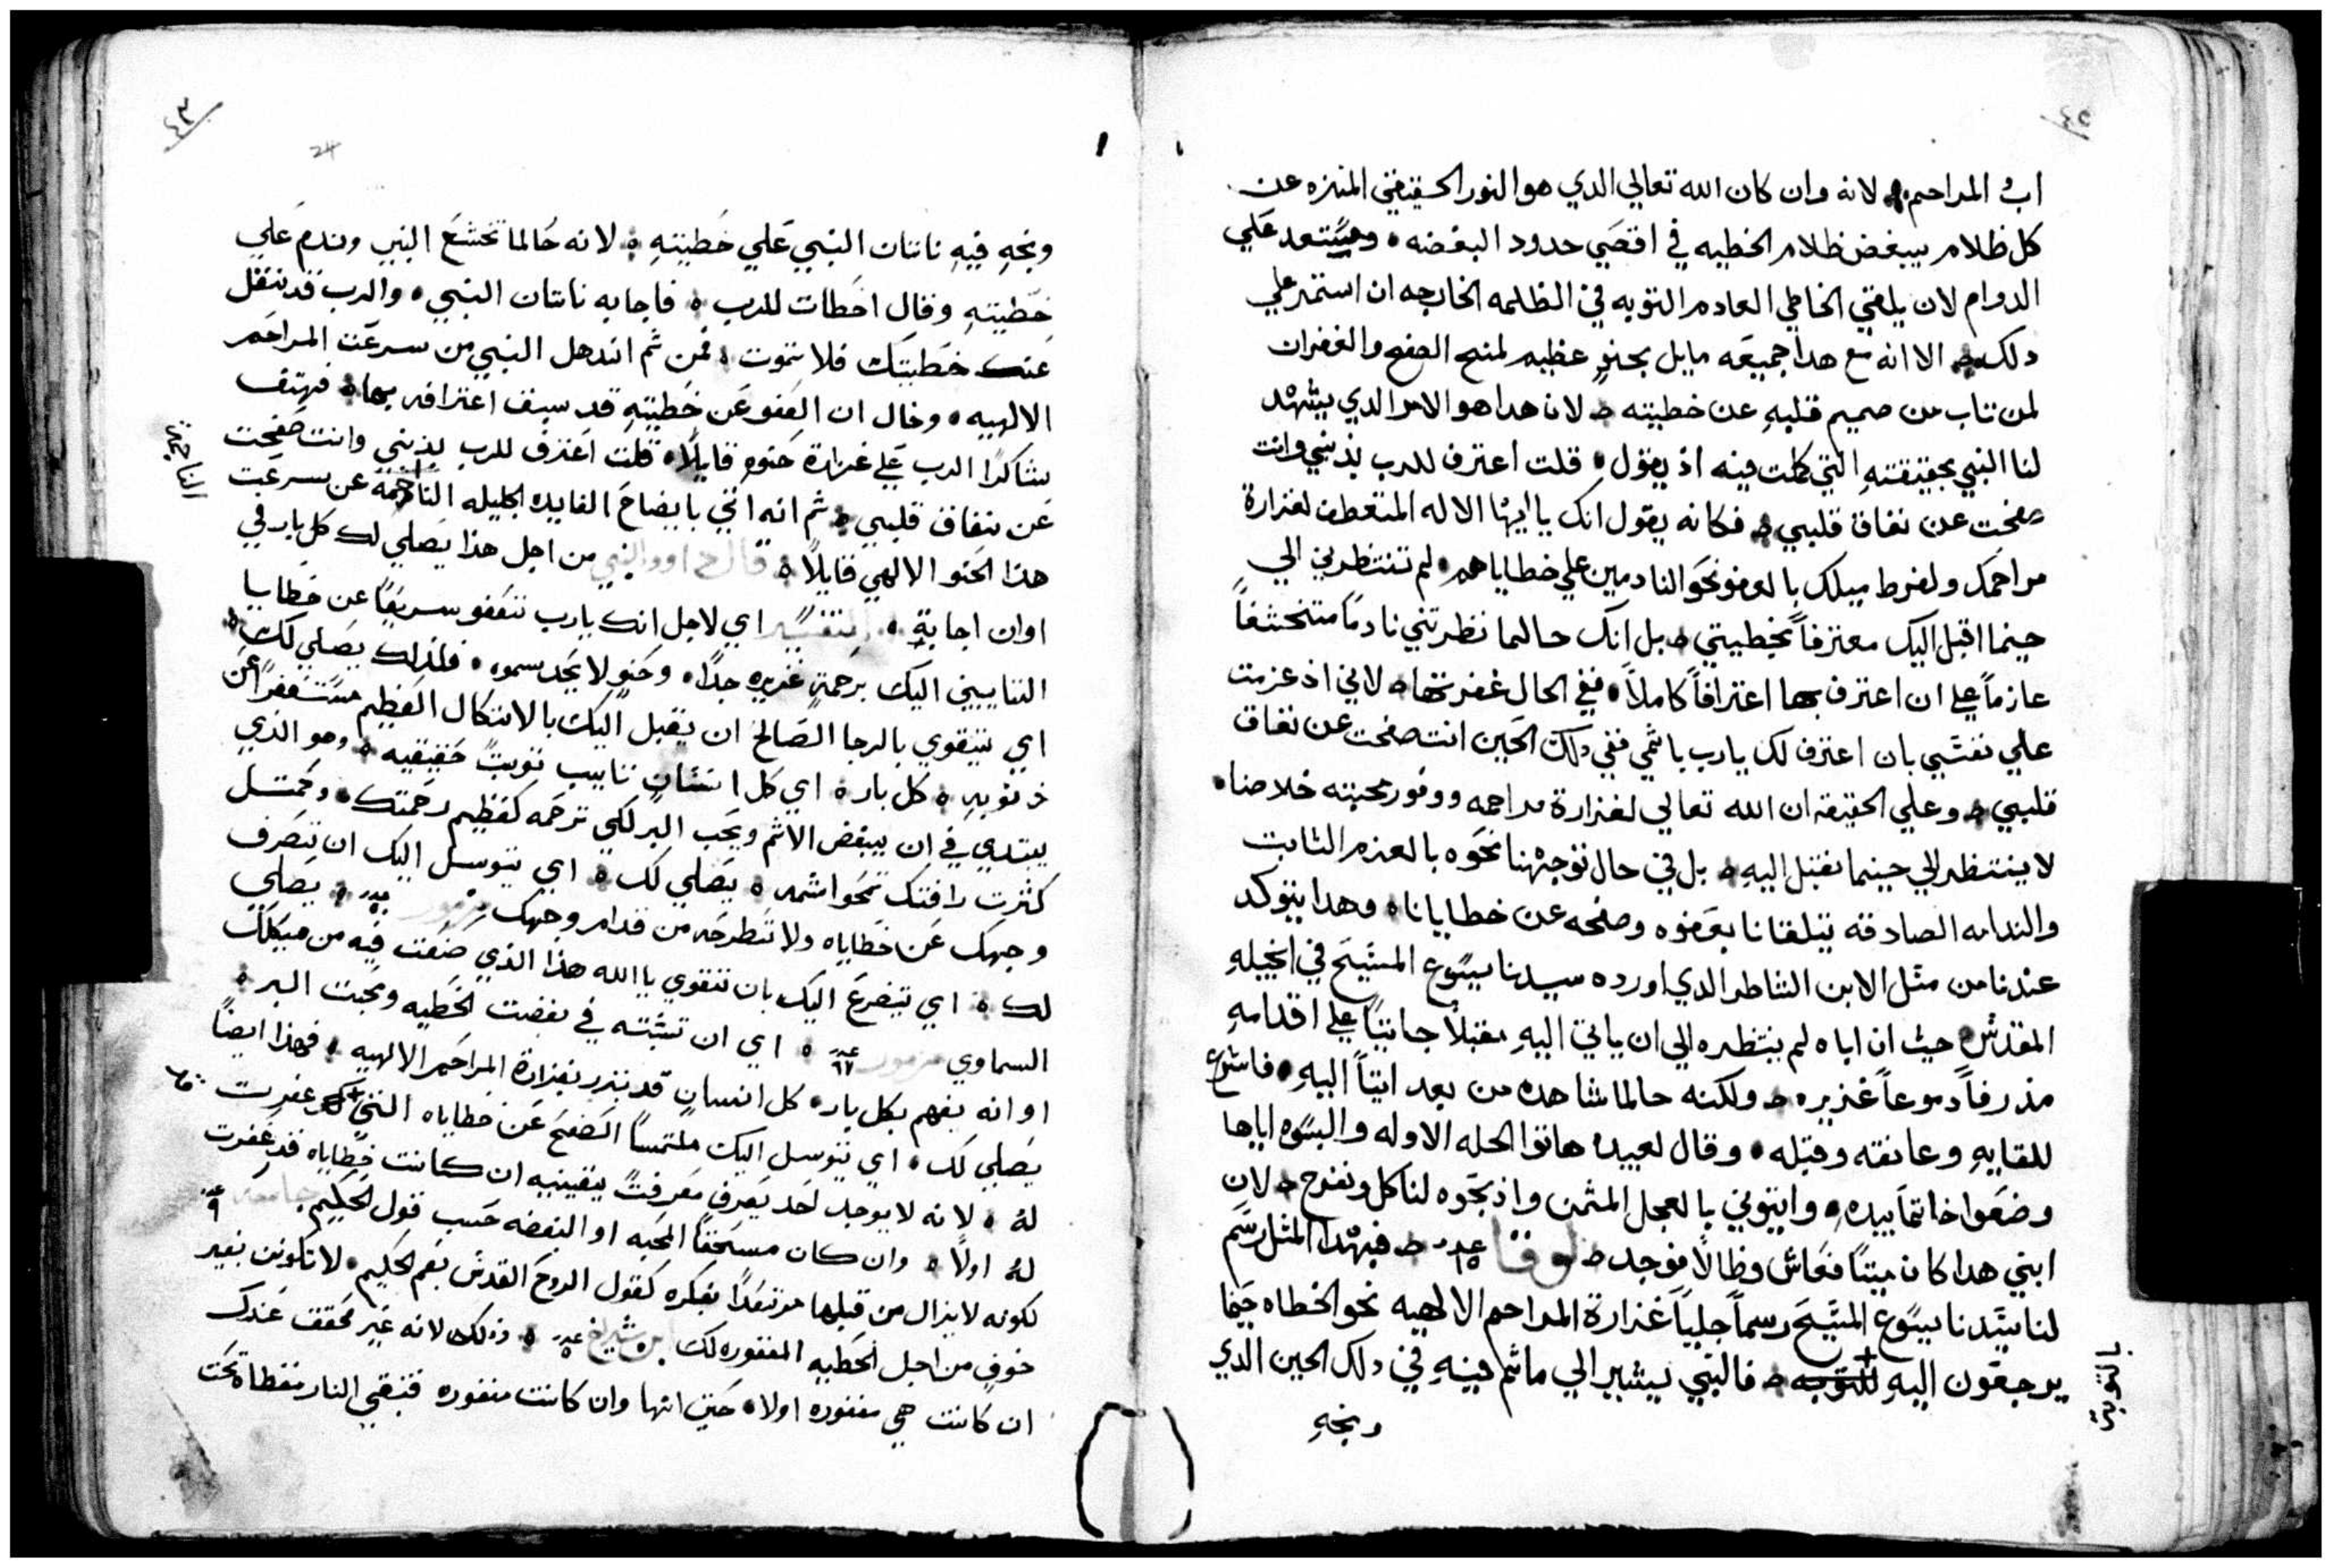 ٤٥
اب المراحم. لانه وان كان الله تعالي الدي هو النور الحقيقي المنزه عن
كل ظلام يبغض ظلام الخطيه في اقصَي حدود البغضه. ومستعد عَلي
الدوام لان يلقي الخاطي العادم التوبه في الظلمه الخارجه ان استمر علي
دلك. الا انه مع هدا جميعَه مايل بحنوٍ عظيم لمنح الصفح والغفران
لمن تاب من صميم قلبهِ عن خطيته. لان هدا هو الامر الدي يشهد
لنا النبي بحقيقتهِ التي كملت فيه اذ يقول. قلت اعترف للرب بذنبي وانت
صفحت عن نفاق قلبي. فكانه يقول انك يا ايها الاله المتعطف لغزارة
مراحمك ولفرط ميلك بالعفو نحَو النادمين علي خطاياهم. لم تنتظرني الي
حينما اقبل اليك معترفاً بخطيتي. بل انك حالما نظرتني نادماً متخشعاً
عازماً علي ان اعترف بها اعترافاً كاملاً. ففي الحال غفرتها. لاني اذ عزمت
علي نفسَي بان اعترف لك يارب باثمي ففي دلك الحَين انت صفحت عن نفاق
قلبي. وعلي الحقيقه ان الله تعالي لغزارة مراحمه ووفور محبته خلاصنا.
لا ينتظر الي حينما نقبل اليهِ. بل في حال توجهنا نحَوه بالعزم الثابت
والندامه الصادقه يتلقانا بعَفوه وصفحه عن خطايانا. وهدا يتوكد
عندنا من مثل الابن الشاطر الدي اورده سيدنا يسَوع المسَيَح في انجيلهِ
المقدس. حيث ان اباه لم ينتظره الي ان ياتي اليهِ مقبلاً جاثياً علي اقدامهِ
مذرفاً دموعاً غزيره. ولكنه حالما شاهده من بعد اتياً اليهِ. فاسَرع
للقايهِ وعانقه وقبله. وقال لعبيده هاتوا الحله الاوله والبسَوه اياها
وضعَوا خاتماً بيدهِ. وايتوني بالعجل المثمن واذبحَوه لناكل ونفرح. لان
ابني هدا كان ميتاً فعَاش وظالاً فوجد. لوقا عدد ١٥. فبهدا المثل رسَم
لنا سيَدنا يسَوع المسَيَح رسماً جلياً غزارة المراحم الالهيه نحو الخطاه حيَنما
يرجعَون اليهِ للتوبه. فالنبي يشير الي ماتم فيهِ في دلك الحين الدي
بالتوبة
وبخهِ
٤٣
24
وبخهِ فيهِ ناتان النبي عَلي خَطيتهِ. لانه حَالما تخشعَ النبي وندم عَلي
خَطيتهِ وقال اخَطات للرب. فاجابه ناتان النبي. والرب قد نقل
عَنك خطيتك فلا تموت. فمن ثم اندهل النبي من سرعَت المراحَم
الالهيه. وخال ان العَفو عَن خَطيتهِ قد سبق اعترافه بها. فهتف
شاكرًا الرب عَلي غزارة حَنوهِ قايلًا. قلت اعَترف للرب بذنبي وانت صَفحت
عَن نفاق قلبي. ثم انه اتي بايضاحَ الفايده الجليله الناجمة عن سرعَت
الناجمة
هذا الحَنو الالهي قايلًا. قال داوود النبي من اجل هذا يصَلي لك كل بار في
اوان اجابةٍ. التفسَير اي لاجل انك يارب تعَفو سريعًا عن خَطايا
التايبين اليك برحَمةٍ غزيره جدًا. وحَنوٍ لا يحَد سموه. فلذلك يصَلي لك.
اي يتقوي بالرجا الصَالحَ ان يقبل اليك بالاتكال العَظيم مستغفرًا عَن
ذنوبهِ. كل بار. اي كل انسَان تايب توبتً حَقيقيه. وهو الذي
يبتدي في ان يبغض الاثم ويحَب البر لكي ترحَمه كعَظيم رحَمتك. وكمثل
كثرت رافتك تمحَوا اثمه. يصَلي لك. اي يتوسل اليك ان تصَرف
وجهك عَن خَطاياه ولا تَطرحَه من قدام وجهك مزمور عدد ٥٠. يصَلي
لك. اي يتضرعَ اليك بان تتقوي يا الله هذا الذي صَنعَت فيه من هيكلك
السماوي مزمور عدد ٦٧. اي ان تثبته في بغضت الخَطيه ومحَبت البر.
او انه يفهم بكل بار. كل انسان قد تبرر بغزارة المراحَم الالهيه. فهذا ايضًا
يصَلي لك. اي يتوسل اليك ملتمسًا الصَفحَ عَن خَطاياه التي غفرت
لهُ. لانه لا يوجد احَد يعَرف معَرفتً يقينيه ان كانت خَطاياه قد غَفرت
لهُ اولًا. وان كان مستحَقًا المحَبه او البغضه حَسب قول الحَكيم جامعه عدد ٩
لكونه لا يزال من قبلها مرتعَدًا بفكره كقول الروحَ القدسَ بفم الحَكيم. لا تكونن بغير
خوفٍ من اجل الخَطيه المغفوره لك ابن شيراخ عدد ٥. وذلك لانه غَير محَقق عَندك
ان كانت هي مغفوره اولا. حَتي انها وان كانت مغفوره فتبقي النار مغطاة تحَت